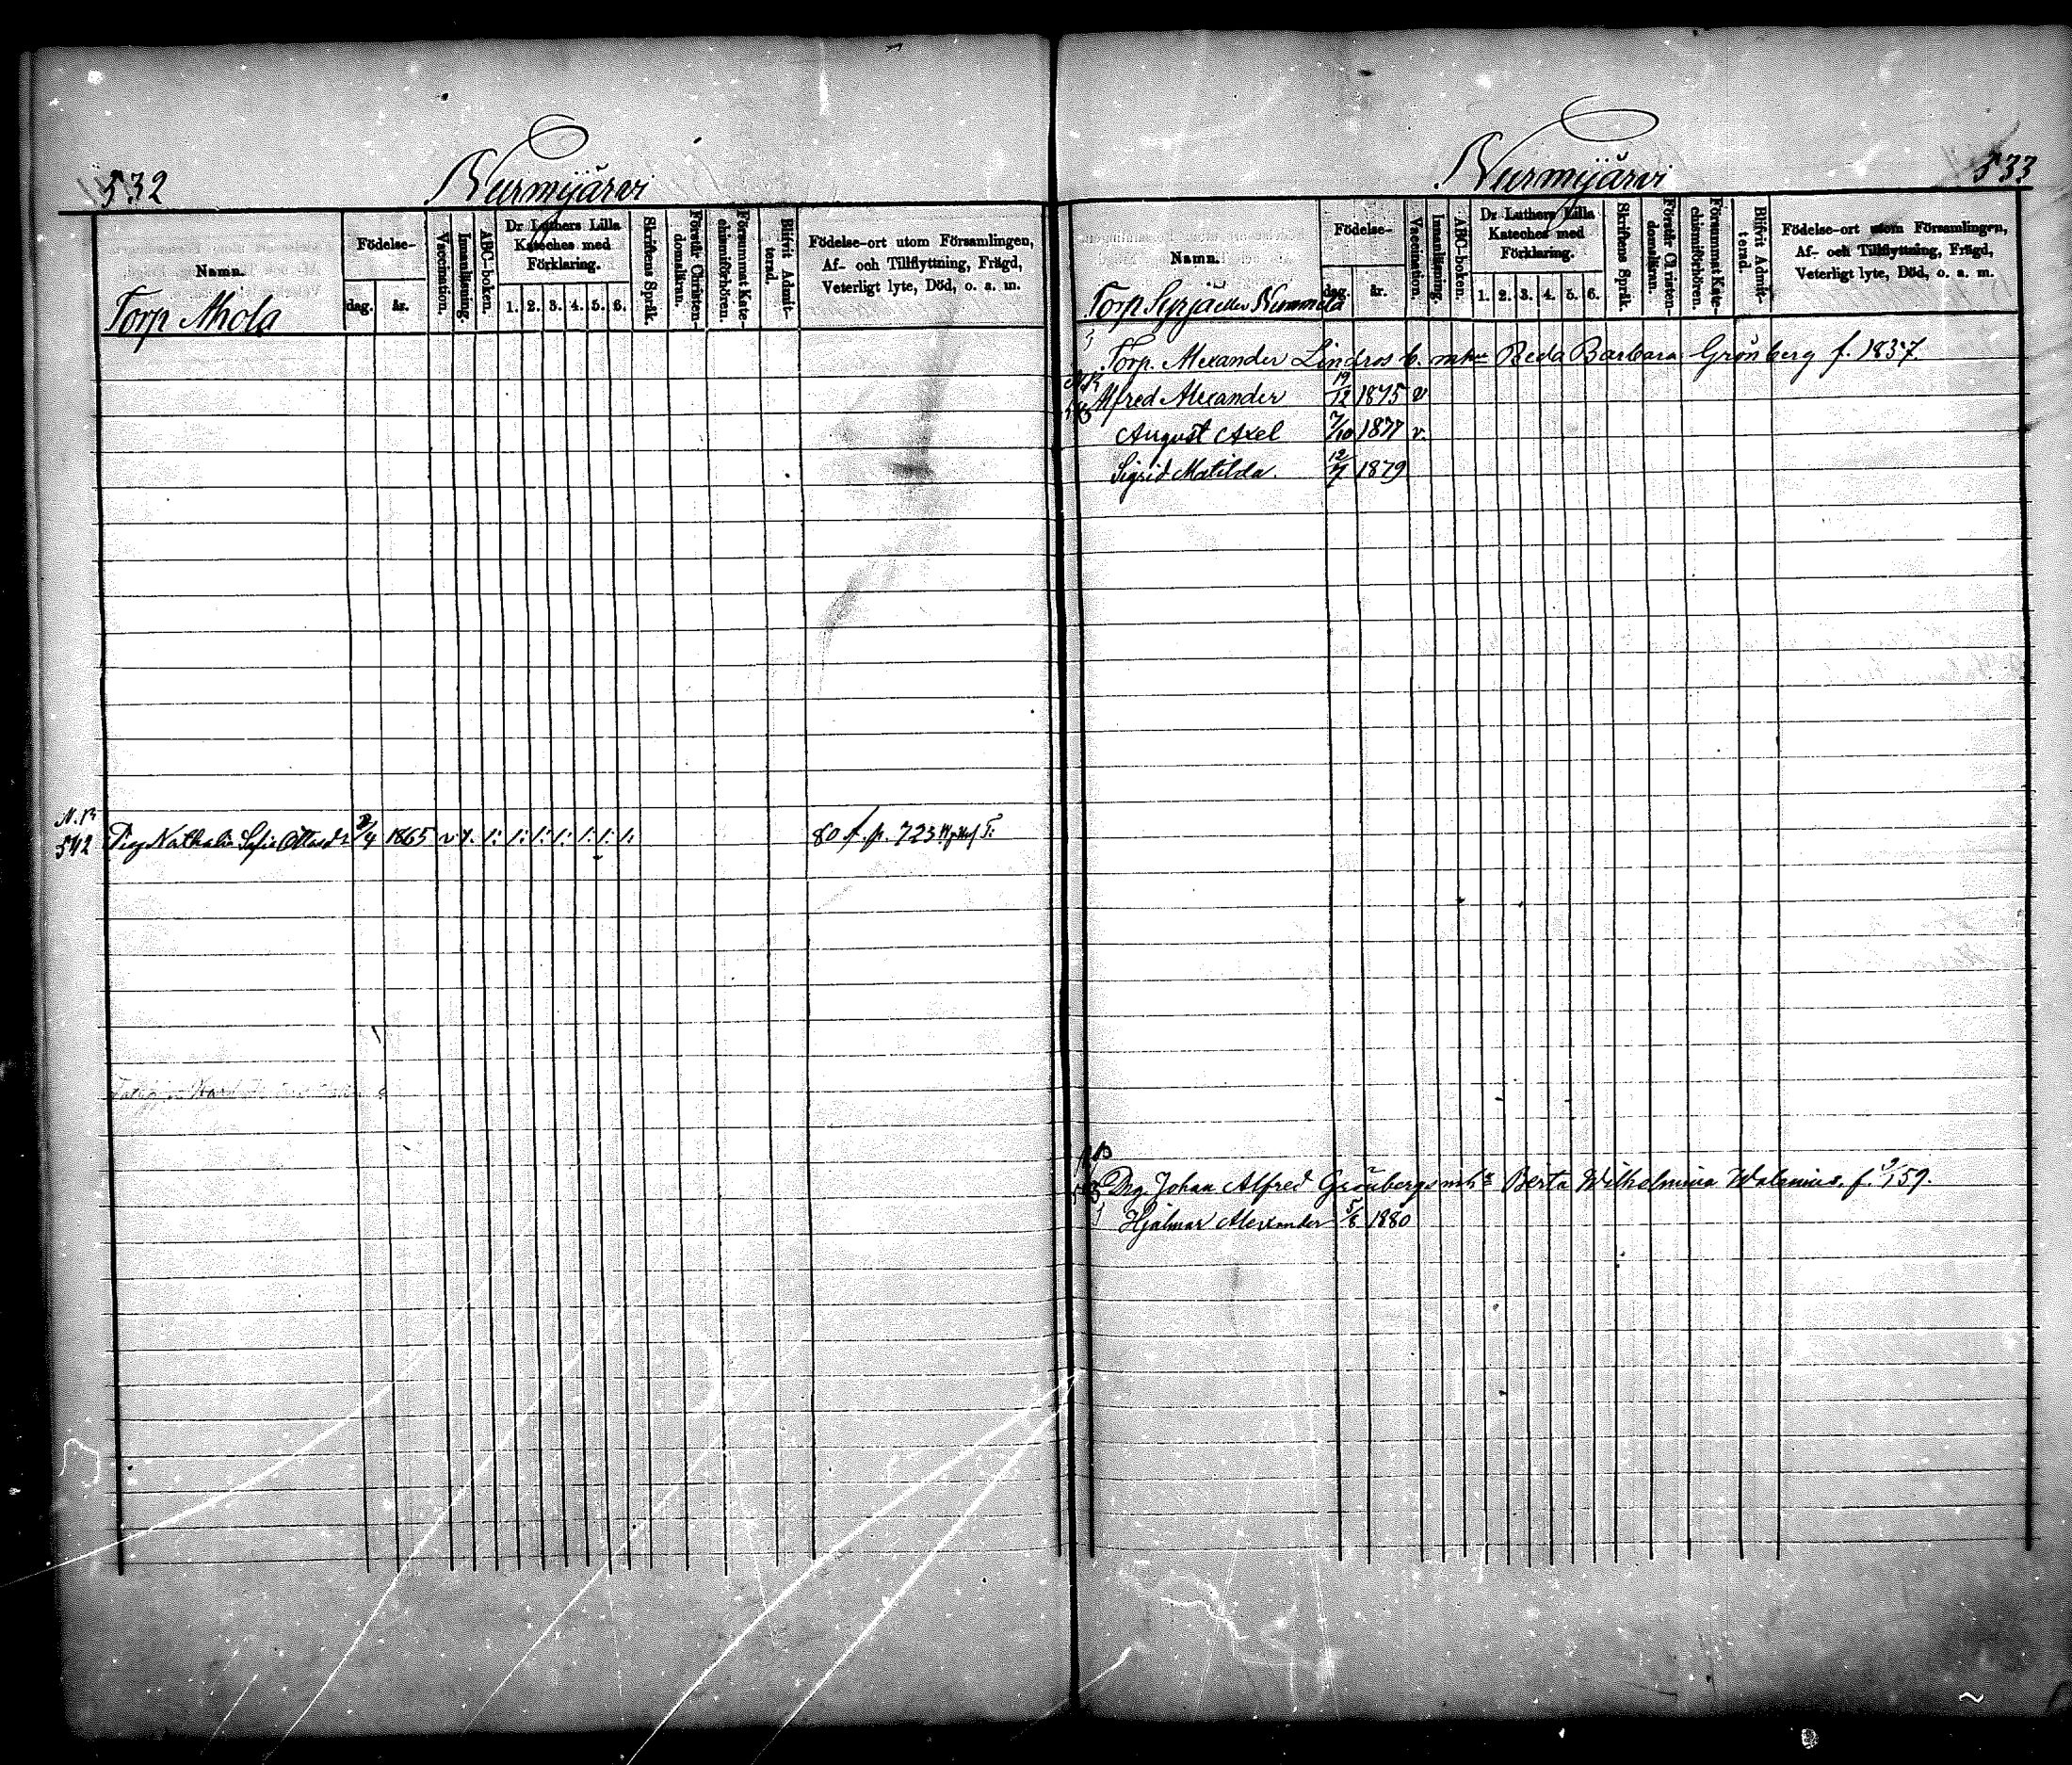 532
Nurmijärvi
Namn.
Födelse-
dag.
år.
Vaccination.
Innanläsning.
ABC-boken.
Dr Luthers Lilla
Kateches med
Förklaring.
1. 2. 3. 4. 5. 6.
Skriftens Språk.
Förstår Christen-
domsläran.
Försummat Kate-
chismiförhören.
Blifvit Admit-
terad.
Födelse-ort utom Församlingen,
Af- och Tillflyttning, Frägd,
Veterligt lyte, Död, o. a. m.
Torp Ahola
N.B
542 Pig. Nathalia Sofia Ottosdr 2/4 1865 v. 1. 1: 1: 1: 1: 1: 1: 1: 80 f. p. 723
533
Nurmijärvi
Namn.
Födelse-
dag.
år.
Vaccination.
Innanläsning.
ABC-boken.
Dr Luthers Lilla
Kateches med
Förklaring.
1. 2. 3. 4. 5. 6.
Skriftens Språk.
Förstår Christen-
domsläran.
Försummat Kate-
chismiförhören.
Blifvit Admit-
terad.
Födelse-ort utom Församlingen,
Af- och Tillflyttning, Frägd,
Veterligt lyte, Död, o. a. m.
Torp Syrjä eller Nummela
Torp. Alexander Lindros b. m. hu Beda Barbara Grönberg f. 1837.
Alfred Alexander 19/12 1875 v
August Axel 7/10 1877 v.
Sigrid Matilda. 12/7 1879
Drg. Johan Alfred Grönbergs m h Berta Wilhelmina Walenius. f. 59.
Hjalmar Alexander 5/8 1880